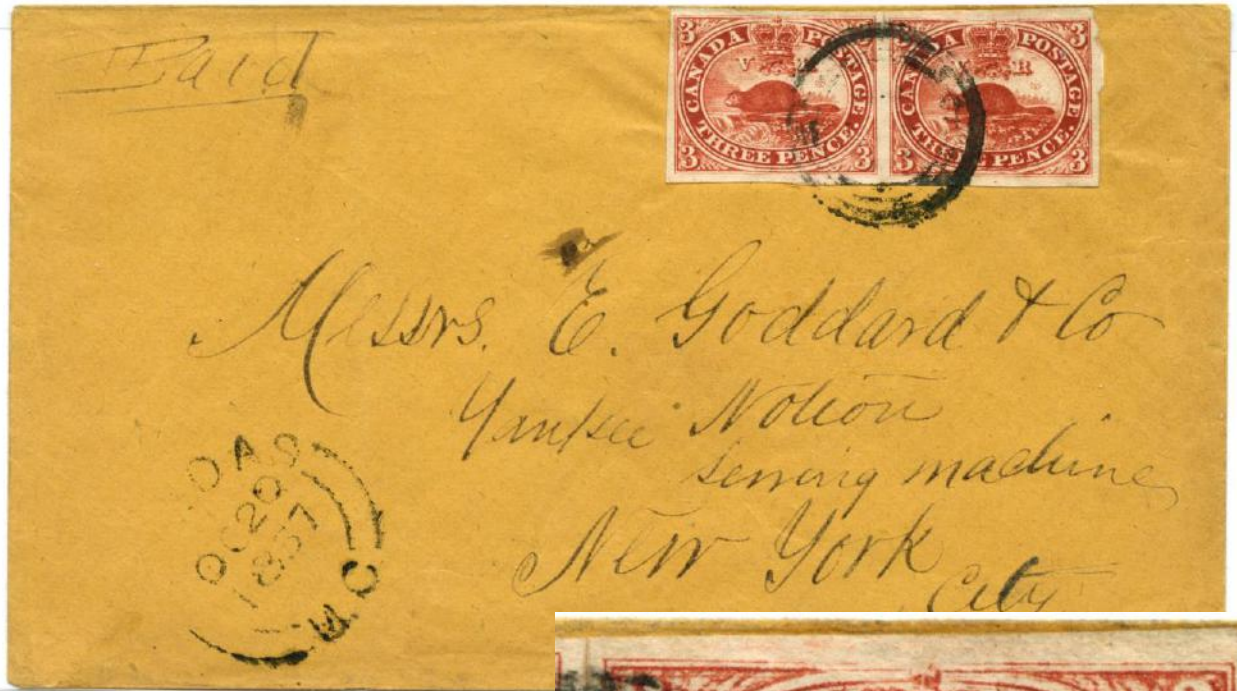 Paid
3 CANADA POSTAGE 3
V R
THREE PENCE.
3 3
3 CANADA POSTAGE 3
R
THREE PENCE.
3 3
Messrs. E. Goddard & Co
Yankee Notion
Sewing machine
New York
City
DAS
OC 20
1857
C